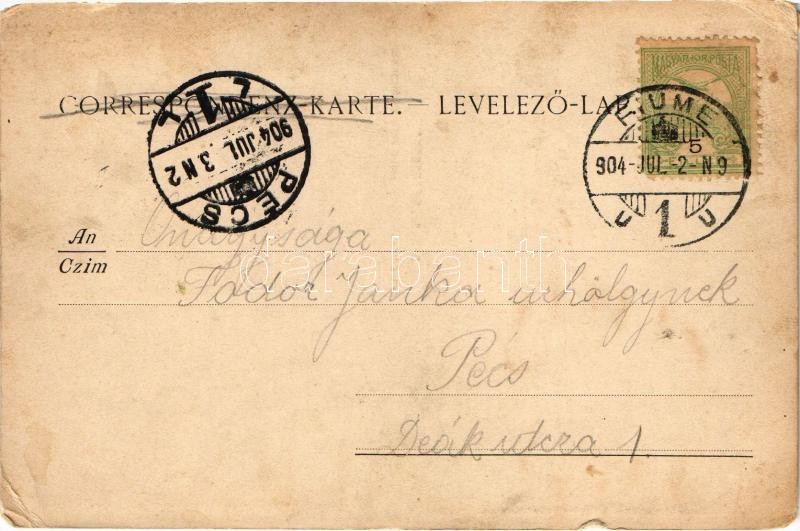 CORRESPONDENZ-KARTE. LEVELEZŐ-LAP
MAGYAR KIR. POSTA
5
FIUME
904-JUL-2-N9
1
L 1 L
904 JUL. 3 N 2
PÉCS
An
Czim
Őnagysága
Fodor Janka úrhölgynek
Pécs
Deák utcza 1.
darabanth